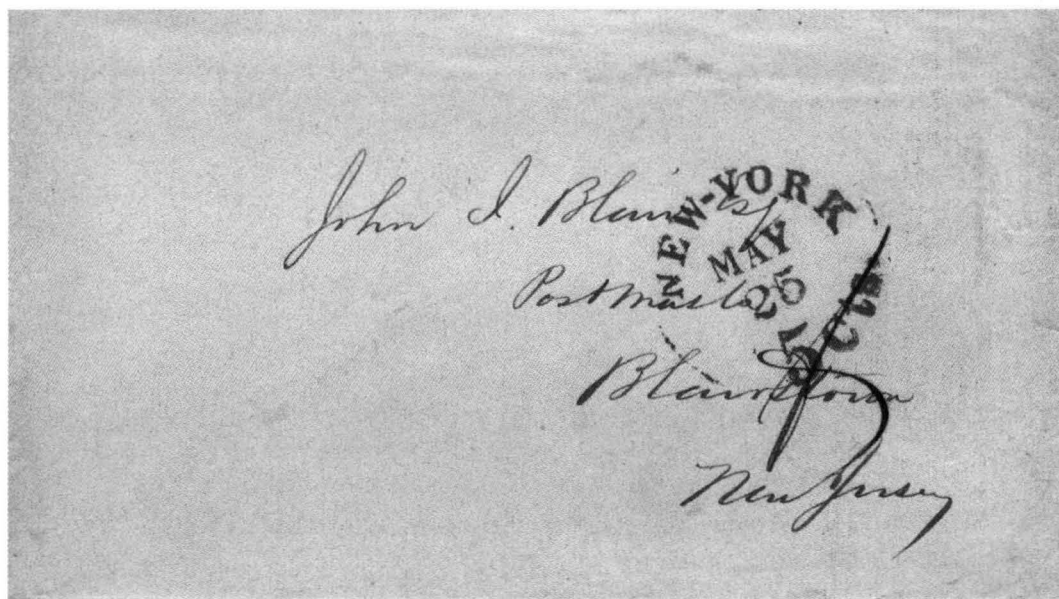 John I. Blair Esq
Postmaster
Blairstown
New Jersey
NEW-YORK
MAY
25
10 Cts